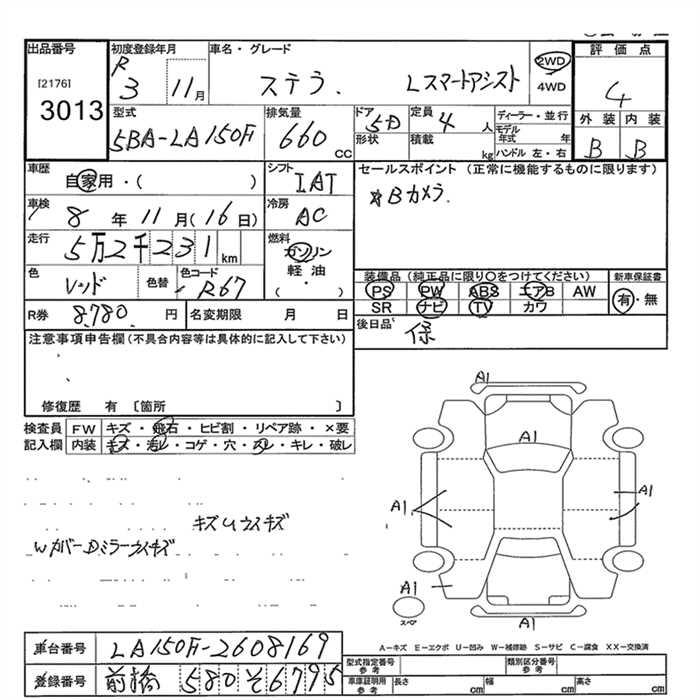 出品番号 初度登録年月 車名・グレード 評価点
[2176] R
3013 3 11月 ステラ. Lスマートアシスト 2WD 4
4WD
型式 排気量 ドア 定員 ディーラー・並行 外装 内装
5BA-LA150F 660cc 5D 4人 モデル年式 年
形状 積載 kg ハンドル 左・右 B B
車歴 自家用・( ) シフト IAT セールスポイント (正常に機能するものに限ります)
車検 8年11月(16日) 冷房 AC ※Bカメラ.
走行 5万2千231km 燃料 ガソリン
色 レッド 色替 色コード R67 軽油・( )
装備品(純正品に限り○をつけてください) 新車保証書
PS PW ABS エアB AW 有・無
SR ナビ TV カワ
R券 8,780.円 名変期限 月 日 後日品 保
注意事項申告欄(不具合内容等は具体的に記入して下さい)
修復歴 有 〔箇所 〕
検査員 FW キズ・飛石・ヒビ割・リペア跡・×要
記入欄 内装 キズ・汚レ・コゲ・穴・スレ・キレ・破レ
A1
A1
A1 A1
キズUウスキズ
WカバーDミラーウスキズ
A1
スペア
A1
A-キズ E-エクボ U-凹み W-補修跡 S-サビ C-腐食 XX-交換済
車台番号 LA150F-2608169
型式指定番号 参考 類別区分番号 参考
登録番号 前橋 580 そ 6795
車庫証明用 参考 長さ cm 幅 cm 高さ cm